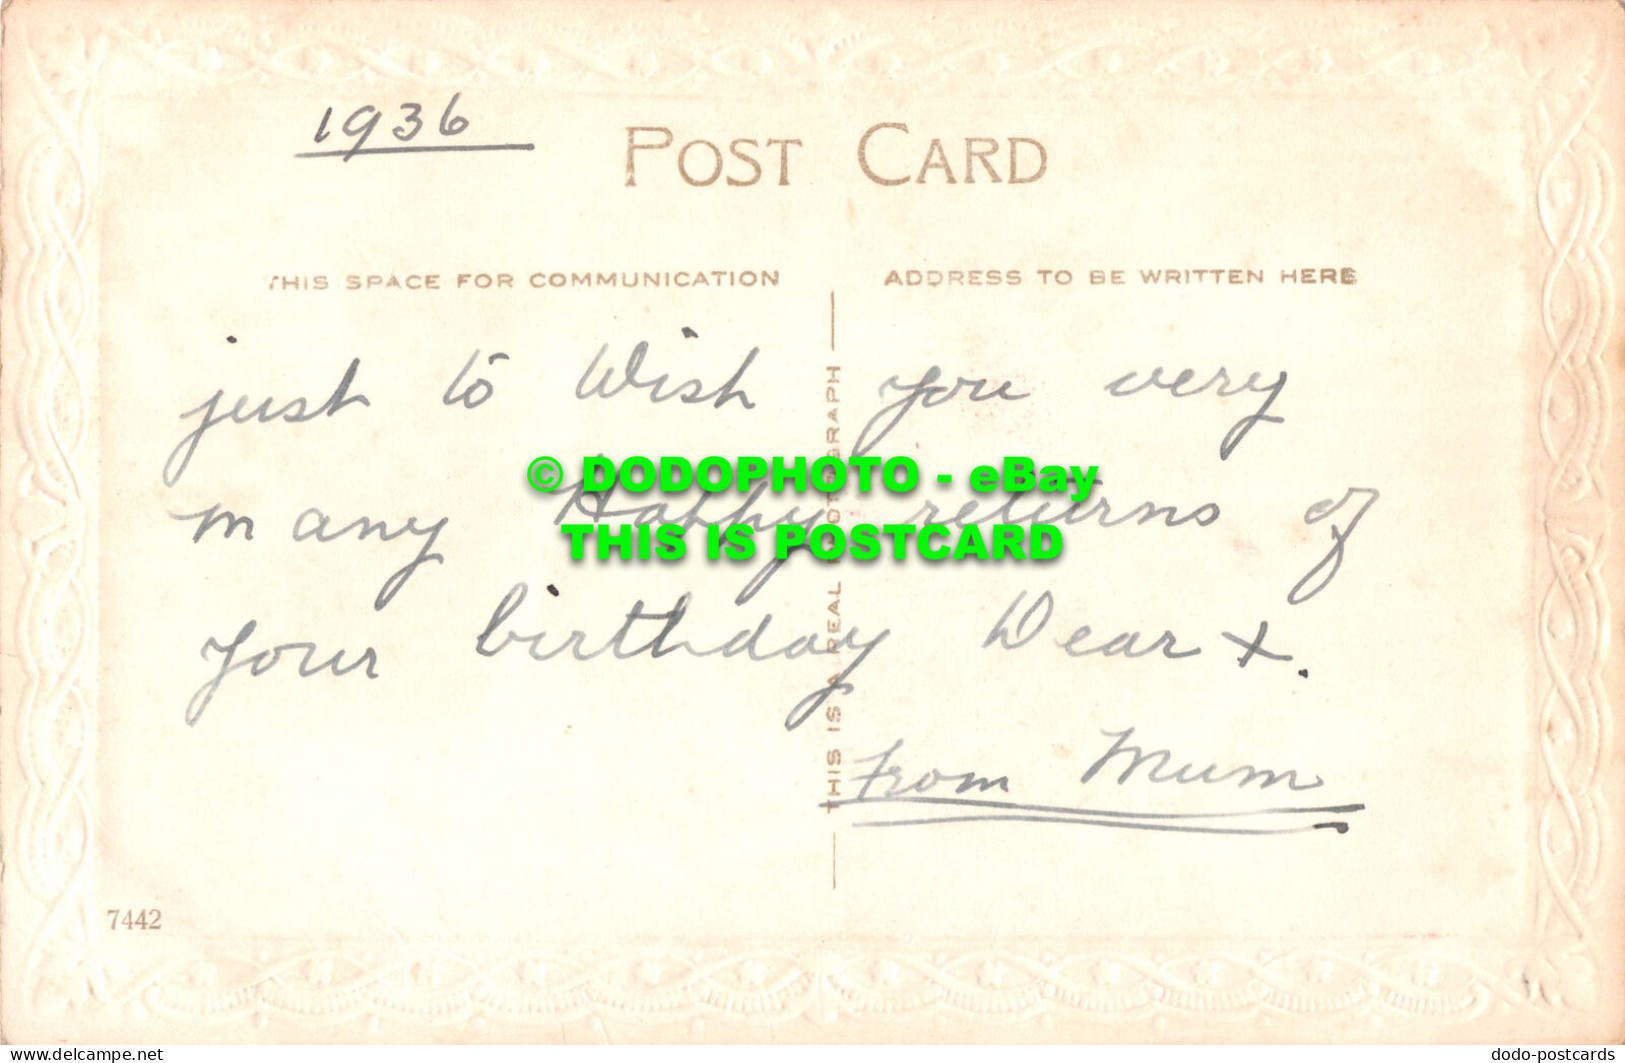 1936
POST CARD
THIS SPACE FOR COMMUNICATION
ADDRESS TO BE WRITTEN HERE
just to Wish you very
many Happy returns of
your birthday Dear x.
from Mum
THIS IS A REAL PHOTOGRAPH
© DODOPHOTO - eBay
THIS IS POSTCARD
7442
www.delcampe.net
dodo-postcards